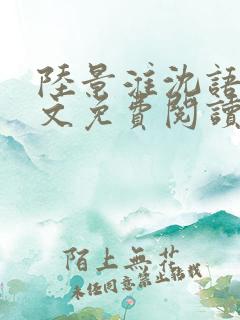 陸景淮沈語
文免費閱讀
陌上無花
未經同意禁止轉載